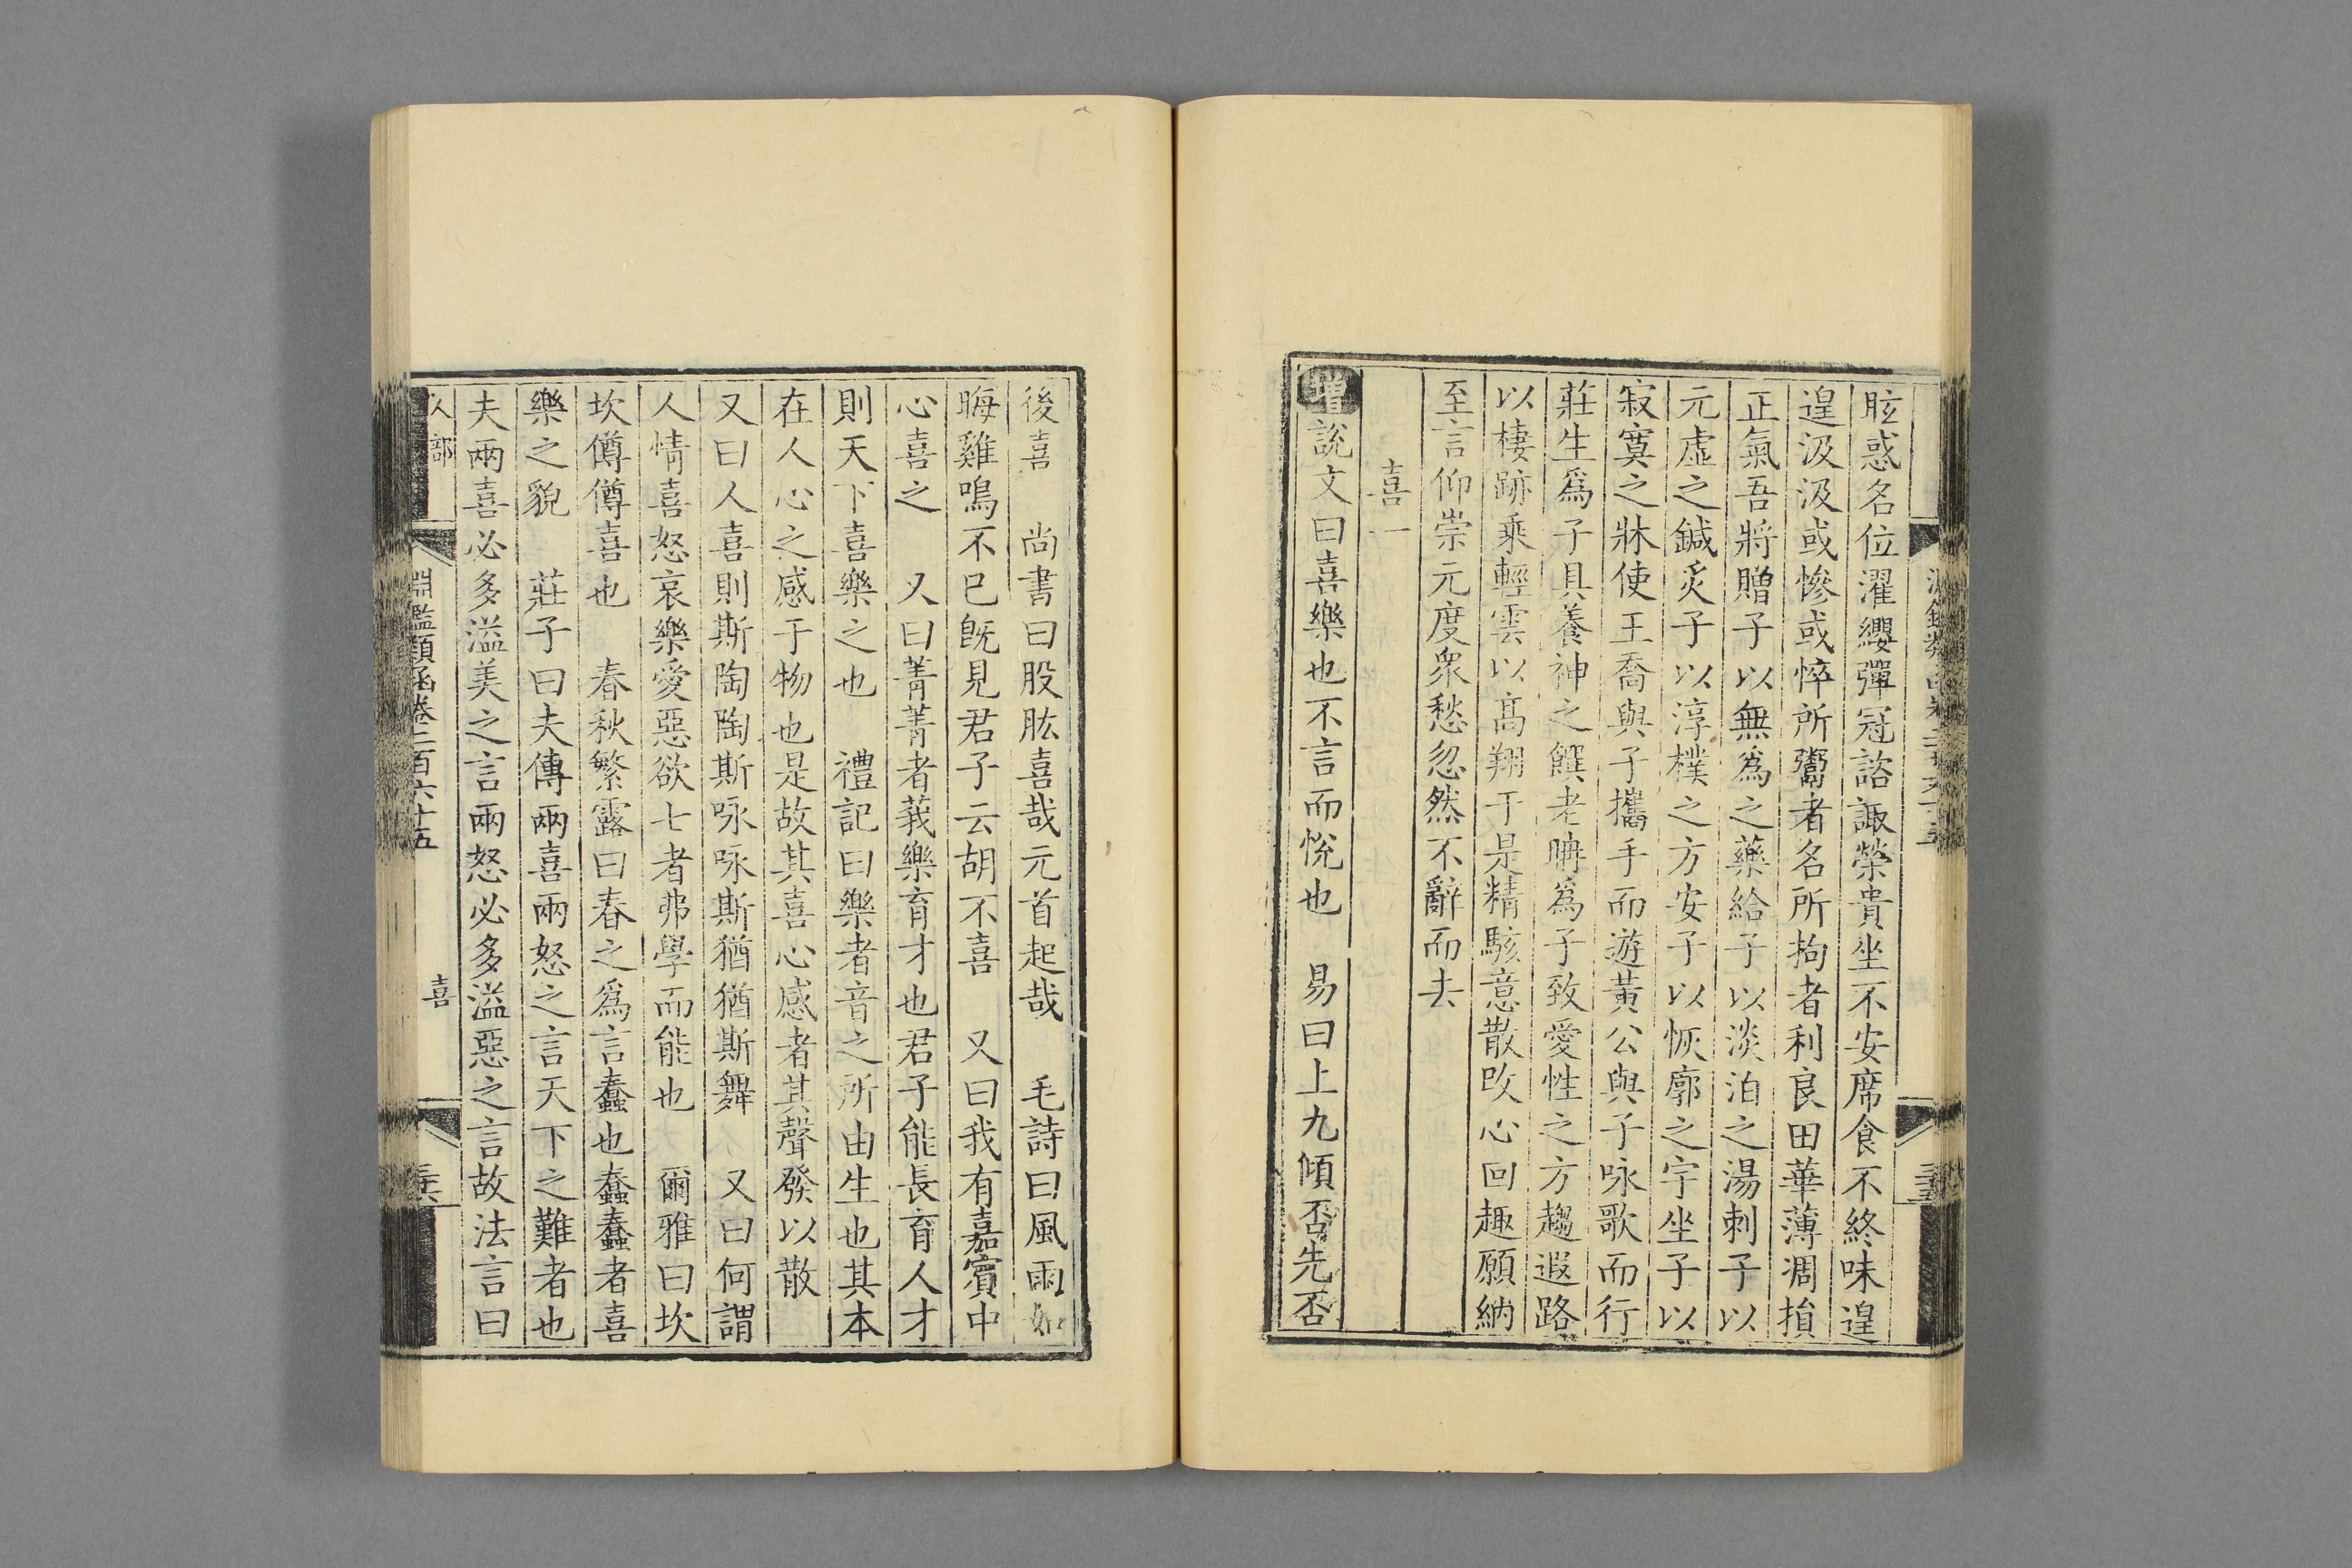 眩惑名位濯纓彈冠諮諏榮貴坐不安席食不終味遑
遑汲汲或慘或悴所鬻者名所拘者利良田華薄凋損
正氣吾將贈子以無爲之藥給子以淡泊之湯刺子以
元虛之鍼炙子以淳樸之方安子以恢廓之宇坐子以
寂寞之牀使王喬與子攜手而遊黃公與子咏歌而行
莊生爲子具養神之饌老聃爲子致愛性之方趨遐路
以棲跡乘輕雲以高翔于是精駭意散改心回趣願納
至言仰崇元度衆愁忽然不辭而去
喜一
增說文曰喜樂也不言而悅也　易曰上九傾否先否
後喜　尚書曰股肱喜哉元首起哉　毛詩曰風雨如
晦雞鳴不已旣見君子云胡不喜　又曰我有嘉賓中
心喜之　又曰菁菁者莪樂育才也君子能長育人才
則天下喜樂之也　禮記曰樂者音之所由生也其本
在人心之感于物也是故其喜心感者其聲發以散
又曰人喜則斯陶陶斯咏咏斯猶猶斯舞　又曰何謂
人情喜怒哀樂愛惡欲七者弗學而能也　爾雅曰坎
坎僔僔喜也　春秋繁露曰春之爲言蠢也蠢蠢者喜
樂之貌　莊子曰夫傳兩喜兩怒之言天下之難者也
夫兩喜必多溢美之言兩怒必多溢惡之言故法言曰
人部　淵鑑類函卷二百六十五　喜